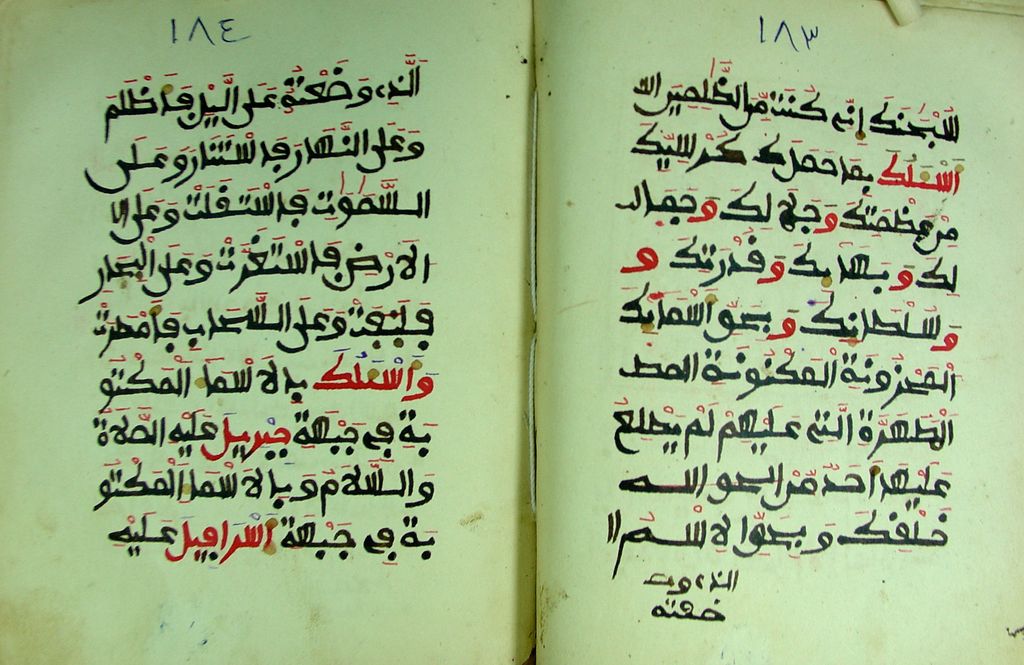 ١٨٣
سُبْحَنَكَ إِنِّي كُنْتُ مِنَ الظَّلِمِينَ
أَسْئَلُكَ بِمَا حَمَلَ كُرْسِيِّكَ
مِنْ عَظْمَتِكَ وَجَلَا لِكَ وَجَمَا
لِكَ وَبَهَا ئِكَ وَقُدْرَتِكَ وَ
وَسُلْطَانِكَ وَبِحَقِّ اَسْمَائِكَ
الْمَخْزُونَةِ الْمَكْنُونَةِ
الطَّهِرَةِ الَّتِي عَلَيْهِمْ لَمْ يَطَّلِعْ
عَلَيْهَا أَحَدٌ مِّنَ
خَلْقِكَ وَبِحَقِّ الِاسْمِ
الذي و
ضعته
١٨٤
الَّذِي وَضَعْتَهُ عَلَى الَّيْلِ فَأَظْلَمَ
وَعَلَى النَّهَارِ فَاسْتَنَارَ وَعَلَى
السَّمَوَاتِ فَاسْتَقَلَّتْ وَعَلَى الا
الاَرْضِ فَاسْتَقَرَّتْ وَعَلَى الْبِحَارِ
وَعَلَى السَّحَابِ فَأَمْطَرَتْ
وَاَسْئَلُكَ بِالاَسْمَا الْمَكْتُو
بَةِ فِي جَبْهَةِ جِبْرِيلَ عَلَيْهِ الصَّلَاةُ
وَالسَّلَامُ وَبِالاَسْمَا الْمَكْتُو
بَةِ فِي جَبْهَةِ اَسْرَافِيلَ عَلَيْهِ